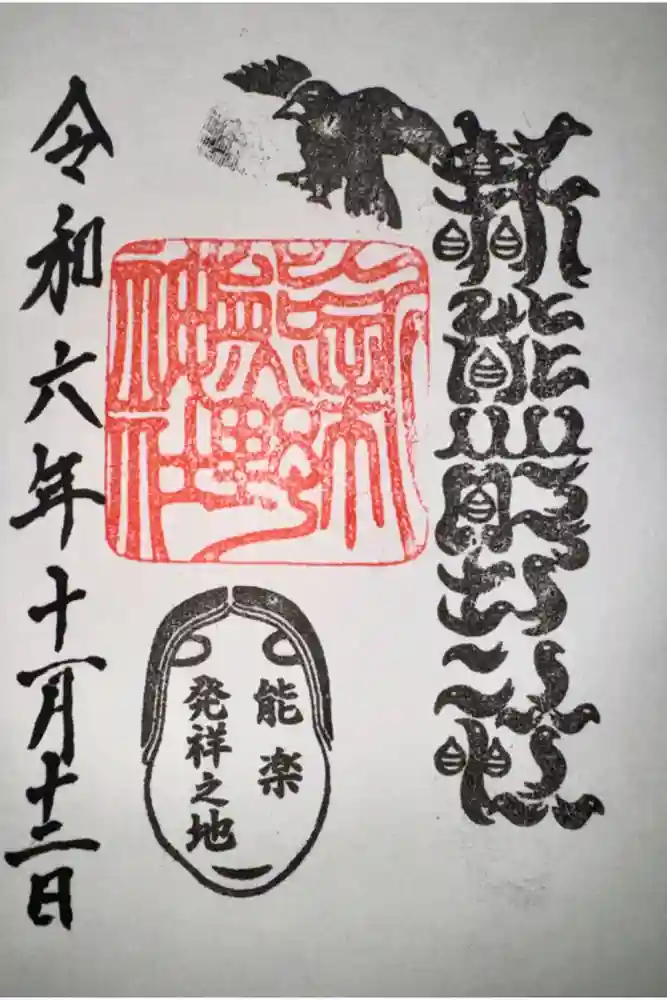 新熊野社
新熊野神社
能楽
発祥之地
令和六年十一月十二日